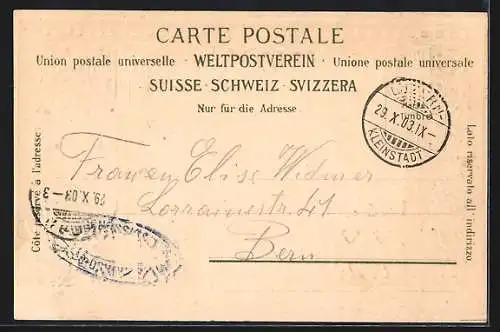 CARTE POSTALE
Union postale universelle · WELTPOSTVEREIN · Unione postale universale
SUISSE · SCHWEIZ · SVIZZERA
Nur für die Adresse
29.X.03.IX-
KLEINSTADT
Côté réservé à l'adresse
Lato riservato all' indirizzo
Frauen Elise Widmer
Lorrainestr. 41
Bern
29.X.03 - 3